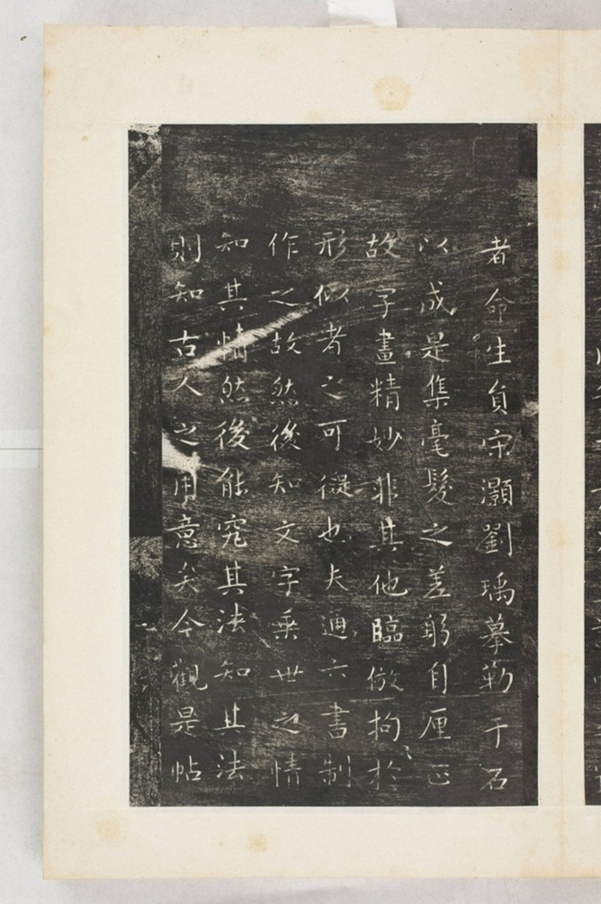 者命生負宋灝劉瑀摹勒于石
以成是集毫髮之差躬自厘正
故字畫精妙非其他臨倣拘於
形似者之可儗也夫通六書制
作之故然後知文字垂世之情
知其情然後能究其法知其法
則知古人之用意矣今觀是帖